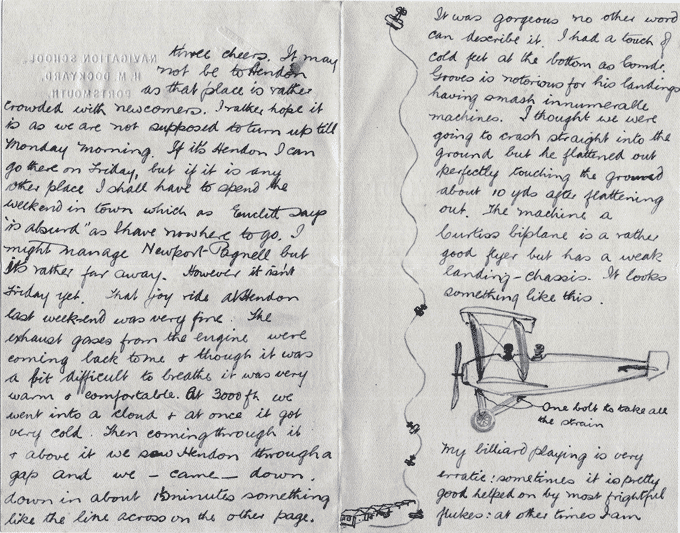 NAVIGATION SCHOOL,
H.M. DOCKYARD,
PORTSMOUTH.
three cheers. It may
not be to Hendon
as that place is rather
crowded with newcomers. I rather hope it
is as we are not supposed to turn up till
Monday morning. If it's Hendon I can
go there on Friday, but if it is any
other place I shall have to spend the
weekend in town which as says
"is absurd" as I have nowhere to go. I
might manage Newport-Pagnell but
its rather far away. However it isn't
Friday yet. That joy ride at Hendon
last week-end was very fine. The
exhaust gases from the engine were
coming back to me & though it was
a bit difficult to breathe it was very
warm & comfortable. At 3000 ft we
went into a cloud & at once it got
very cold. Then coming through it
& above it we saw Hendon through a
gap and we – came – down.
down in about 1½ minutes something
like the line across on the other page.
It was gorgeous no other word
can describe it. I had a touch of
cold feet at the bottom as Comdr.
Groves is notorious for his landings
having smash innumerable
machines. I thought we were
going to crash straight into the
ground but he flattened out
perfectly touching the ground
about 10 yds after flattening
out. The machine a
Curtiss biplane is a rather
good flyer but has a weak
landing-chassis. It looks
something like this.
One bolt to take all
the strain
My billiard playing is very
erratic: sometimes it is pretty
good helped on by most frightful
flukes: at other times I am